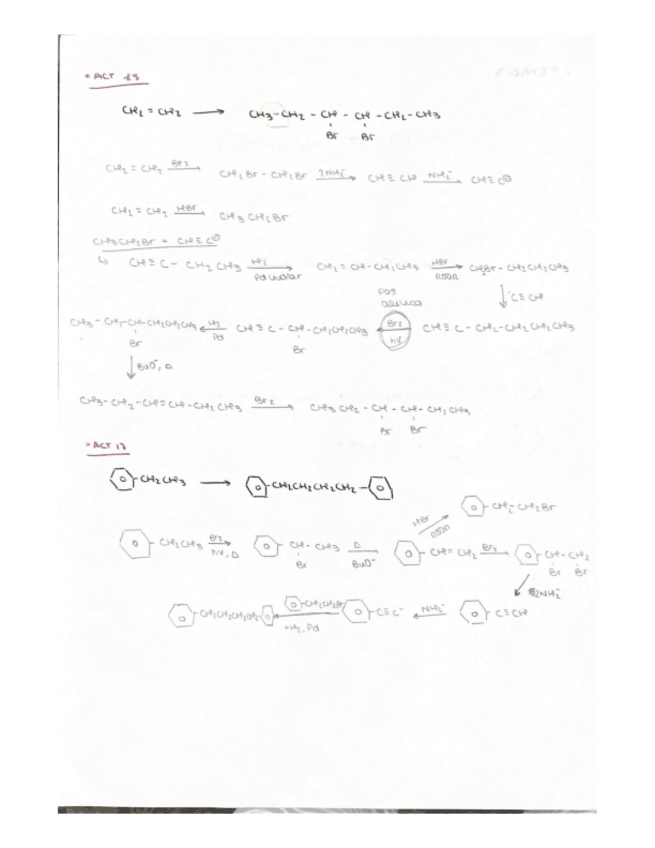 • ACT 25
CH2 = CH2 → CH3-CH2 - CH - CH - CH2 - CH3
Br Br
CH2 = CH2 Br2→ CH2Br - CH2Br 2NH2-→ CH≡CH NH2-→ CH≡C⊖
CH2 = CH2 HBr→ CH3CH2Br
CH3CH2Br + CH≡C⊖
↳ CH≡C - CH2CH3 H2→ CH2 = CH-CH2CH3 HBr→ CH2Br - CH2CH2CH3
ROOR
↓ -C≡CH
CH3- CH2-CH-CH2CH2CH3 ←H2 CH≡C - CH-CH2CH2CH3 ←Br2 CH≡C - CH2-CH2CH2CH3
Br Pd Br hν
↓ BuO-, Δ
CH3- CH2 -CH=CH-CH2CH3 Br2→ CH3CH2 - CH - CH- CH2CH3
Br Br
• ACT 17
-CH2CH3 → -CH2CH2CH2CH2-
HBr ROOR -CH2-CH2Br
-CH2CH3 Br2→ CH-CH3 Δ→ CH=CH2 Br2→ CH-CH2
hν, Δ Br BuO- Br Br
↓ 2NH2-
CH2CH2CH2CH2 ← CH2CH2Br C≡C- ←NH2- C≡CH
+H2, Pd